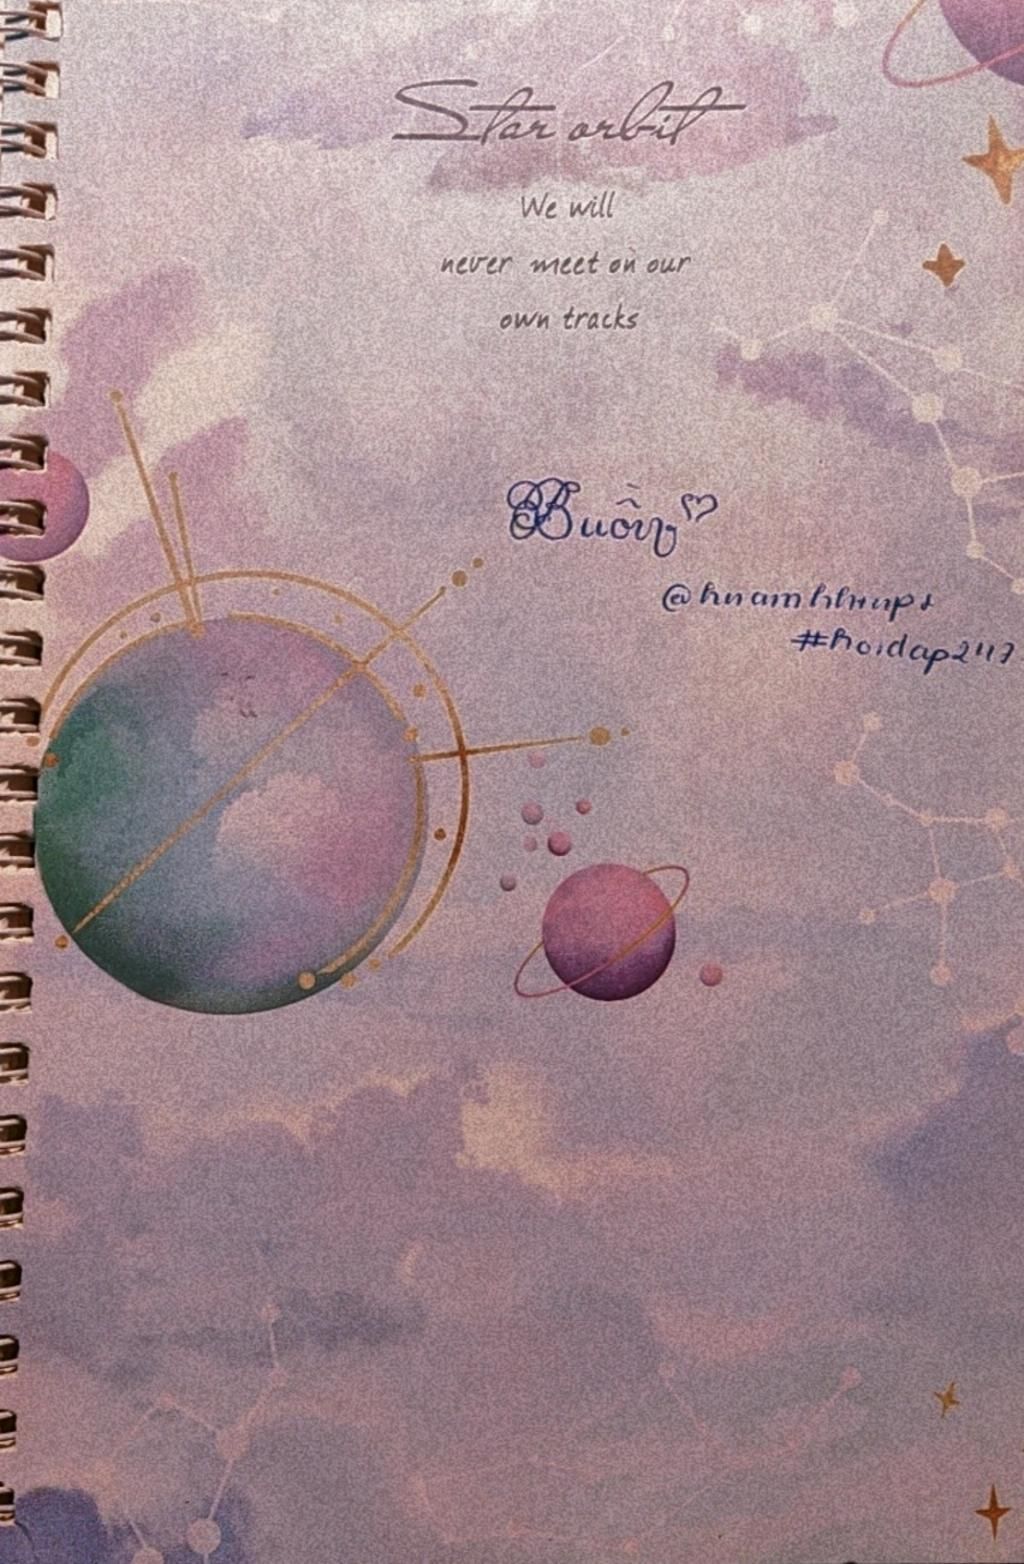 Star orbit
We will
never meet on our
own tracks
Buồn
#hoidap247